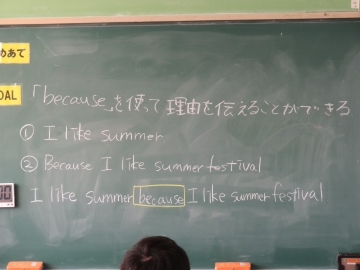 めあて
GOAL
「because」を使って理由を伝えることができる
① I like summer.
② Because I like summer festival
I like summer because I like summer festival